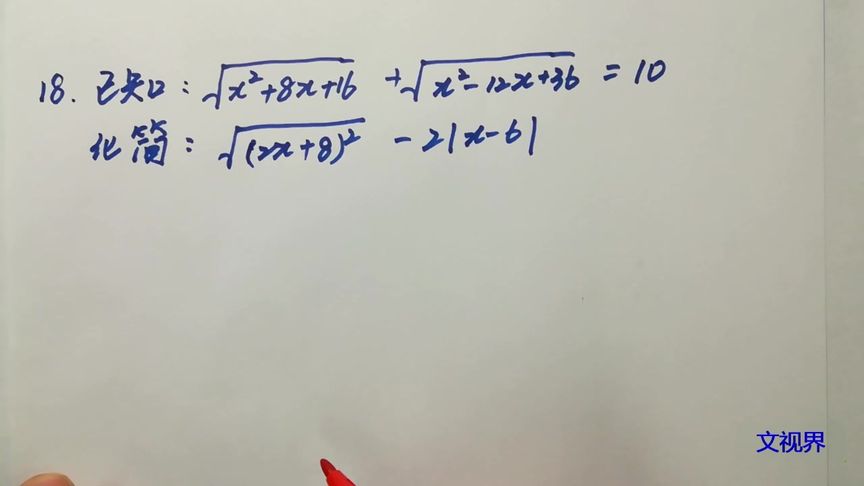 18. 已知: √(x²+8x+16) +√(x²-12x+36) = 10
化简: √((2x+8)²) - 2|x-6|
文视界